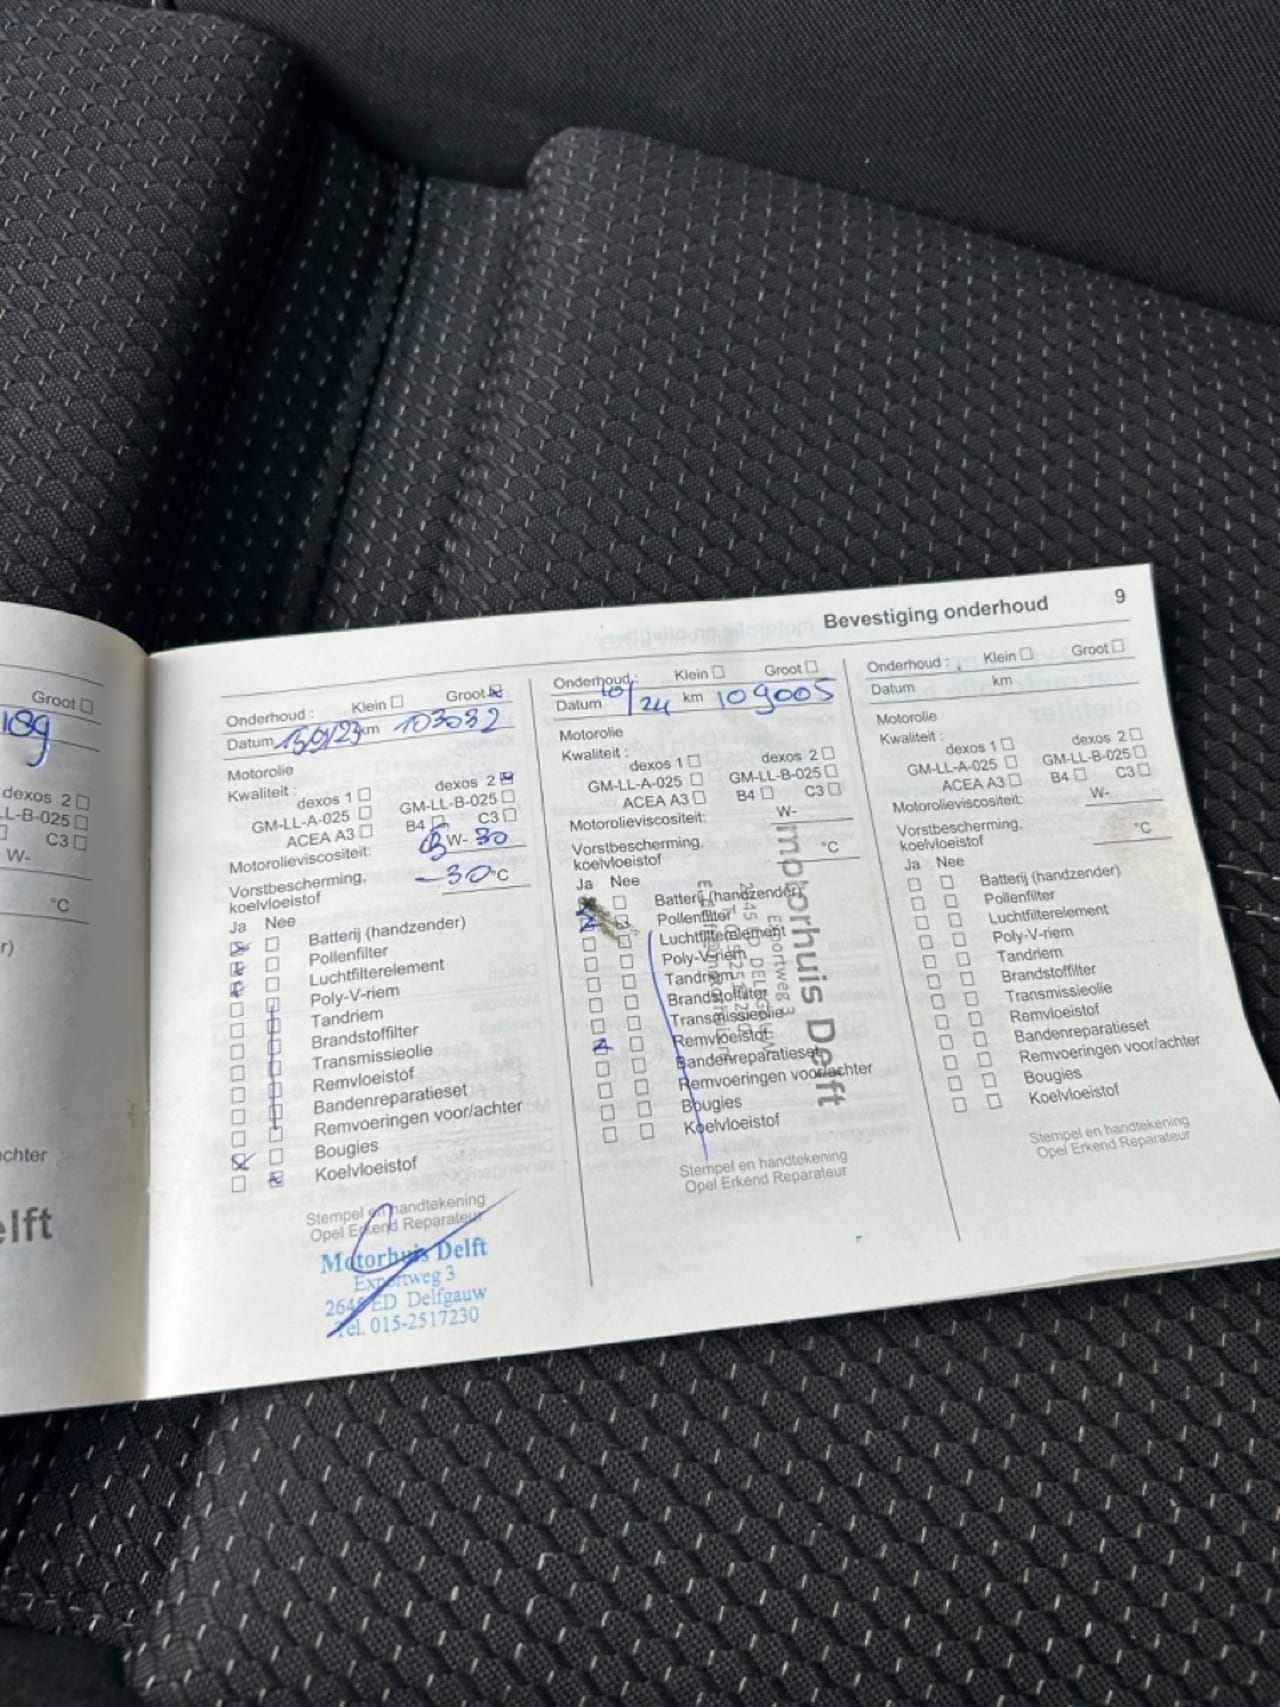 Groot
189
dexos 2
L-B-025
C3
W-
°C
r)
chter
elft
Bevestiging onderhoud 9
Onderhoud : Klein Groot
Datum km 103032
Motorolie
Kwaliteit :
dexos 1 dexos 2
GM-LL-A-025 GM-LL-B-025
ACEA A3 B4 C3
Motorolieviscositeit: W- 30
Vorstbescherming,
koelvloeistof -30 °C
Ja Nee
Batterij (handzender)
Pollenfilter
Luchtfilterelement
Poly-V-riem
Tandriem
Brandstoffilter
Transmissieolie
Remvloeistof
Bandenreparatieset
Remvoeringen voor/achter
Bougies
Koelvloeistof
Stempel en handtekening
Opel Erkend Reparateur
Motorhuis Delft
Exportweg 3
2645 ED Delfgauw
Tel. 015-2517230
Onderhoud : Klein Groot
Datum 10/24 km 109005
Motorolie
Kwaliteit :
dexos 1 dexos 2
GM-LL-A-025 GM-LL-B-025
ACEA A3 B4 C3
Motorolieviscositeit: W-
Vorstbescherming,
koelvloeistof °C
Ja Nee
Batterij (handzender)
Pollenfilter
Luchtfilterelement
Poly-V-riem
Tandriem
Brandstoffilter
Transmissieolie
Remvloeistof
Bandenreparatieset
Remvoeringen voor/achter
Bougies
Koelvloeistof
motorhuis Delft
Exportweg 3
2645 ED DELFGAUW
Stempel en handtekening
Opel Erkend Reparateur
Onderhoud : Klein Groot
Datum km
Motorolie
Kwaliteit :
dexos 1 dexos 2
GM-LL-A-025 GM-LL-B-025
ACEA A3 B4 C3
Motorolieviscositeit: W-
Vorstbescherming,
koelvloeistof °C
Ja Nee
Batterij (handzender)
Pollenfilter
Luchtfilterelement
Poly-V-riem
Tandriem
Brandstoffilter
Transmissieolie
Remvloeistof
Bandenreparatieset
Remvoeringen voor/achter
Bougies
Koelvloeistof
Stempel en handtekening
Opel Erkend Reparateur